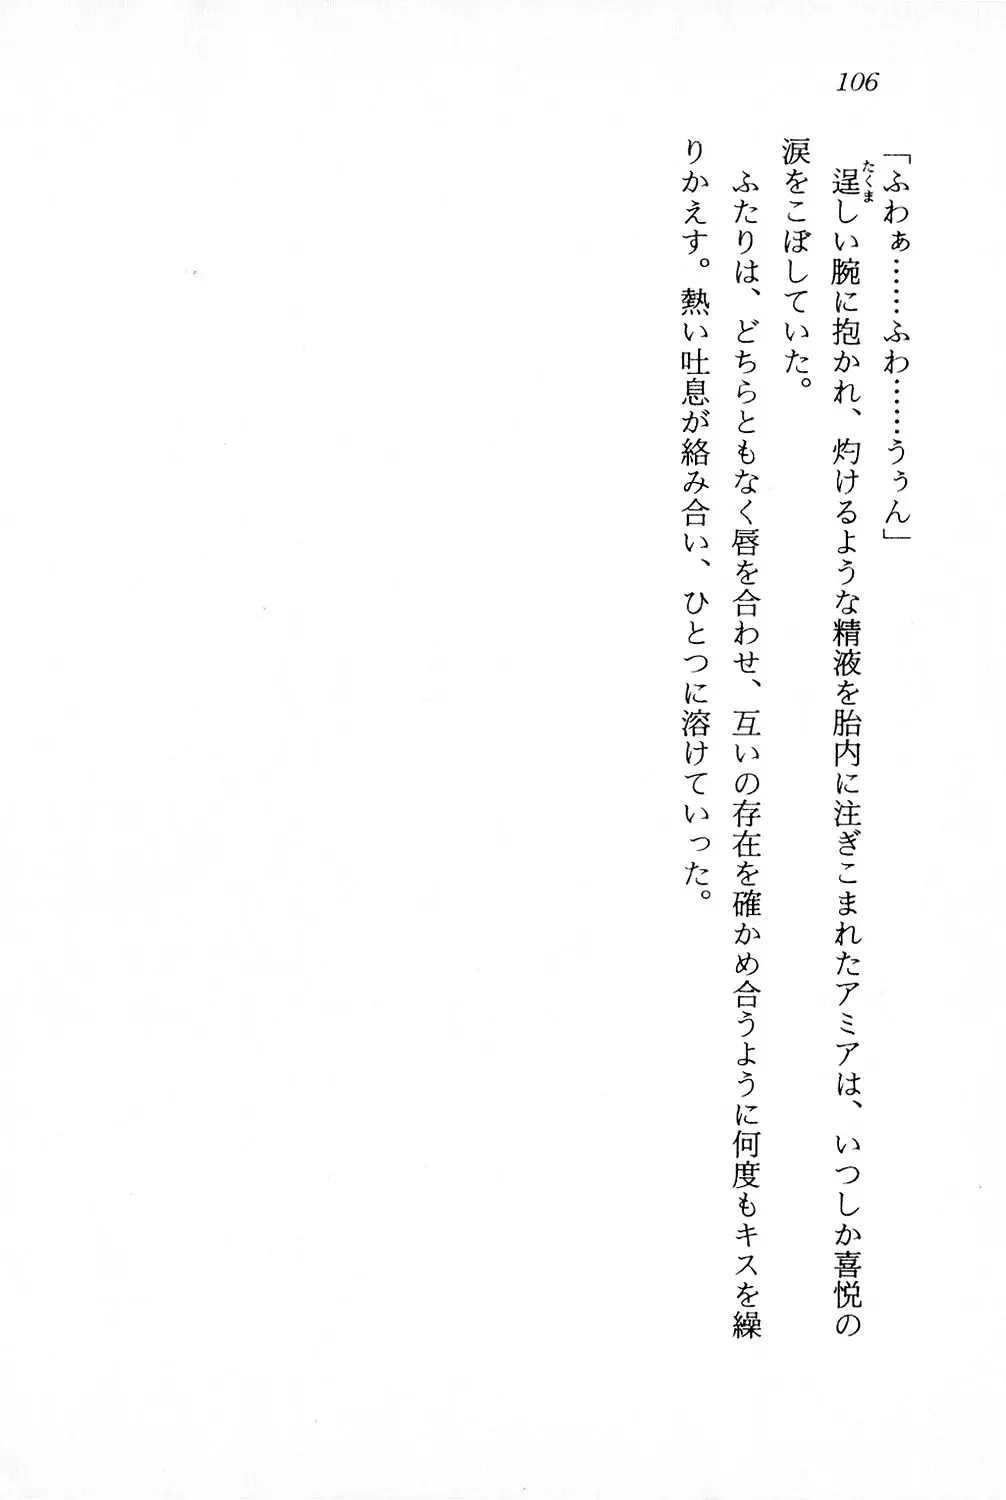 106
「ふわぁ……ふわ……うぅん」
逞しい腕に抱かれ、灼けるような精液を胎内に注ぎこまれたアミアは、いつしか喜悦の
たくま
涙をこぼしていた。
ふたりは、どちらともなく唇を合わせ、互いの存在を確かめ合うように何度もキスを繰
りかえす。熱い吐息が絡み合い、ひとつに溶けていった。